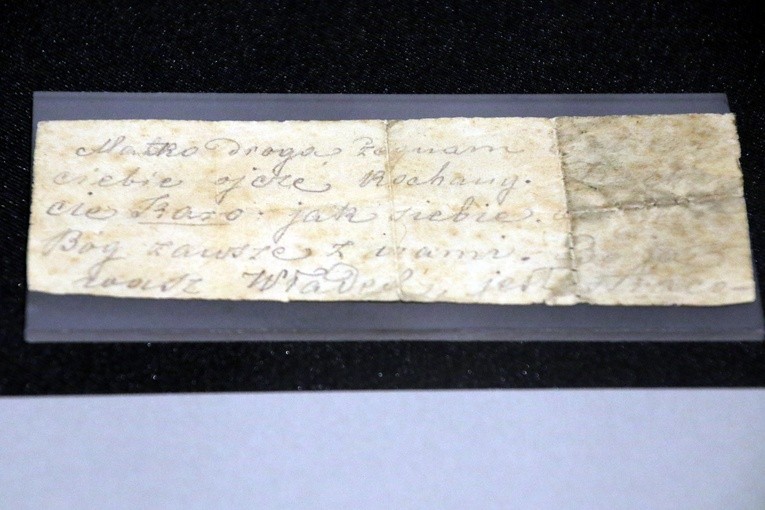 Matko droga żegnam
ciebie ojcże kochany.
cie Kazo. jak siebie.
Bóg zawsze z wami. Bo już
wasz Władek, jest strace-